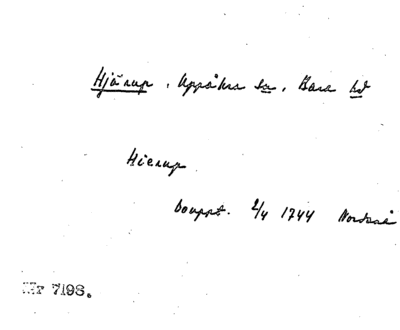 Hjärup, Uppåkra sn, Bara hd
Hierup
Douppt. 2/4 1744
Nr 7198.